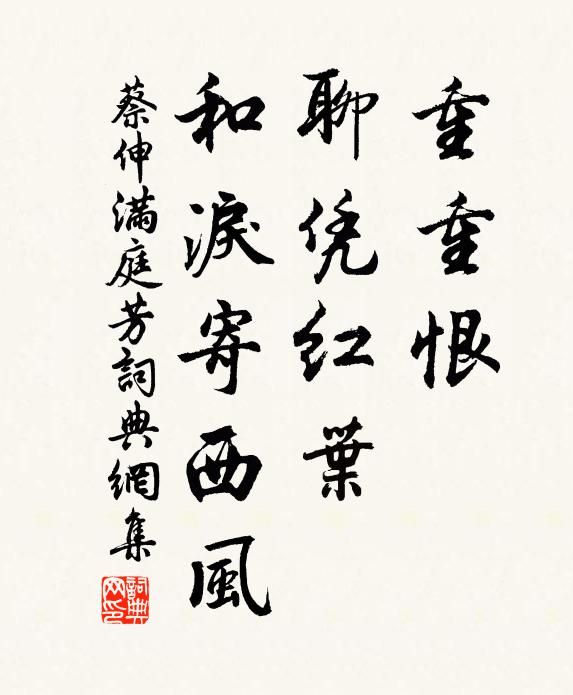 重重恨
聊凭红葉
和淚寄西風
蔡伸满庭芳詞典網集
詞典网印